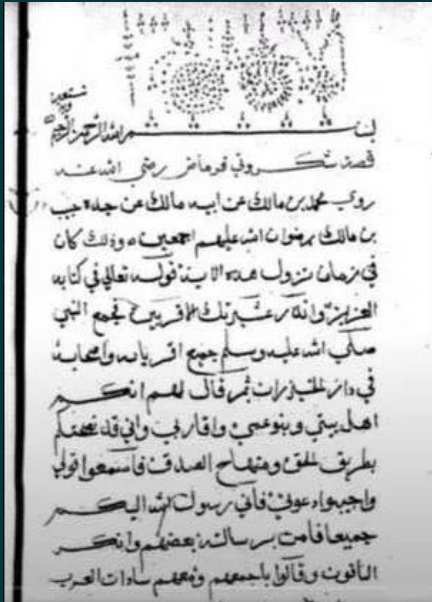 وبه نستعين
بسم الله الرحمن الرحيم
قصة شكروتي فرماض رضي الله عنه
روى محمد بن مالك عن ابيه مالك عن جده حبيب
بن مالك رضوان الله عليهم اجمعين وذلك كان
في زمان نزول هذه الاية قوله تعالى في كتابه
العزيز وانذر عشيرتك الاقربين فجمع النبي
صلى الله عليه وسلم جميع اقربايه واصحابه
في دار الخيزران ثم قال لهم انكم
اهل بيتي وبنو عمي واقاربي واني قد نصحتكم
بطريق الحق ومنهاج الصدق فاسمعوا قولي
واجيبوا دعوتي فاني رسول الله اليكم
جميعا فامن برسالته بعضهم وانكر
الباقون وقالوا باجمعهم ومعهم سادات العرب